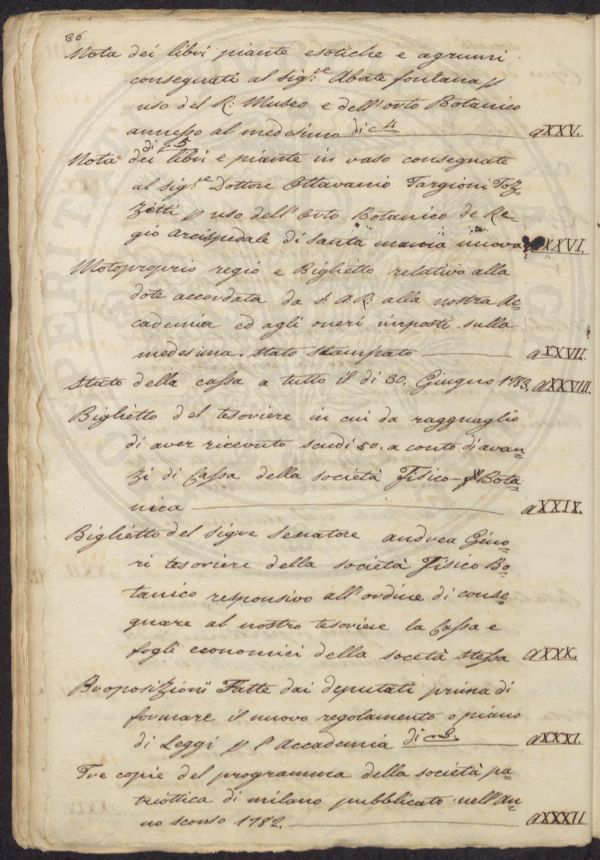 36
Nota dei libri piante esotiche e agrumi
consegnate al sig.re Abate fontana p
uso del R: Museo e dell'orto Botanico
annesso al medesimo di c 4 aXXV.
di c. 5
Nota dei libri e piante in vaso consegnate
al sig.re Dottore Ottavanio Targioni Toz=
zetti p uso dell'Orto Botanico de Re=
gio arcispedale di Santa maria nuova XXVI.
Motoproprio regio e Biglietto relativo alla
dote accordata da S. A. R. alla nostra Ac=
cademia ed agli oneri imposti sulla
medesima. Stato Stampato aXXVII.
Stato della cassa a tutto il di 30. Giugno 1783. aXXVIII.
Biglietto del tesoriere in cui da ragguaglio
di aver ricevuto scudi 50. a conto di avan=
zi di Cassa della società Fisico-Bota=
nica aXXIX.
Biglietto del sigre Senatore andrea Gino=
ri tesoriere della società Fisico Bo=
tanico responsivo all'ordine di conse=
gnare al nostro tesoriere la Cassa e
fogli economici della socetà stessa aXXX.
Proposizioni Fatte dai deputati prima di
formare il nuovo regolamento o piano
di Leggi p l'Accademia di c 9. aXXXI.
Tre copie del programma della società pa=
triottica di milano pubblicato nell'An=
no scorso 1782. aXXXII